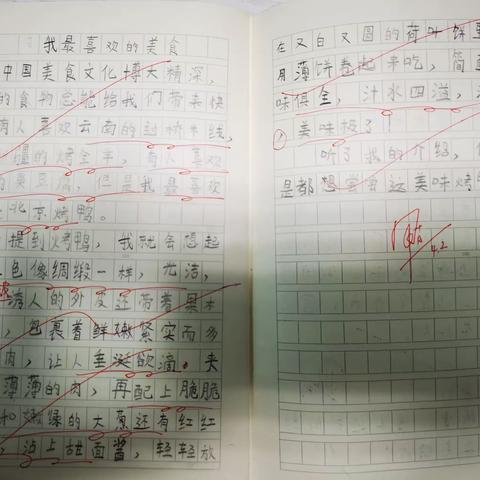 我最喜欢的美食
中国美食文化博大精深，
的食物总能给我们带来快
有人喜欢云南的过桥米线，
疆的烤全羊，有人喜欢
的臭豆腐，但是我最喜欢
北京烤鸭。
提到烤鸭，我就会想起
色像绸缎一样，光洁，
诱人的外皮还带着果木
，包裹着鲜嫩紧实而多
肉，让人垂涎欲滴。夹
薄薄的肉，再配上脆脆
和嫩绿的大葱还有红红
，沾上甜面酱，轻轻放
在又白又圆的荷叶饼里
用薄饼卷起来吃，简直
味俱全，汁水四溢，
美味极了
听了我的介绍，
是都想尝尝这美味烤鸭
4.2